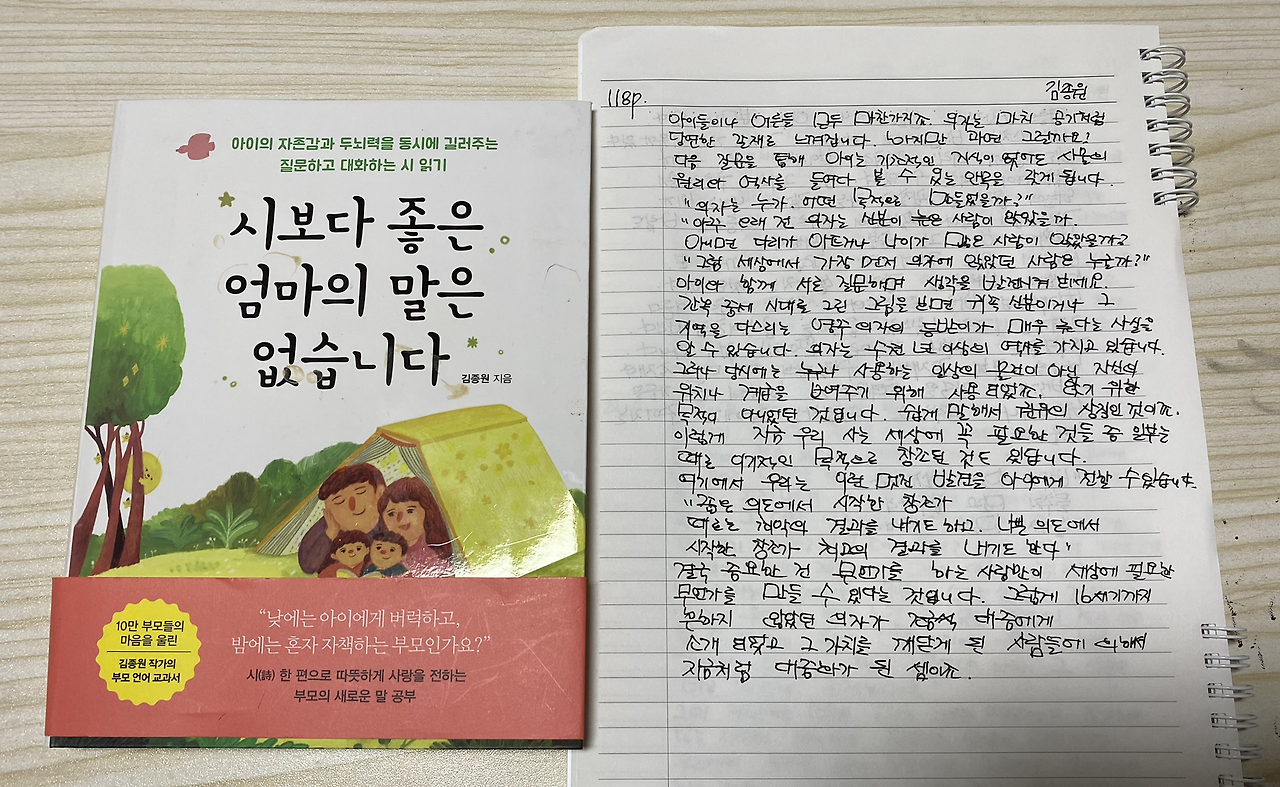 아이의 자존감과 두뇌력을 동시에 길러주는
질문하고 대화하는 시 읽기
시보다 좋은
엄마의 말은
없습니다
김종원 지음
“낮에는 아이에게 버럭하고,
밤에는 혼자 자책하는 부모인가요?”
10만 부모들의
마음을 울린
김종원 작가의
부모 언어 교과서
시(詩) 한 편으로 따뜻하게 사랑을 전하는
부모의 새로운 말 공부
김종원
118p.
아이들이나 어른들 모두 마찬가지죠. 의자는 마치 공기처럼
당연한 존재로 느껴집니다. 하지만 과연 그럴까요?
다음 질문을 통해 아이는 기초적인 지식이 없어도 사물의
원리와 역사를 들여다 볼 수 있는 안목을 갖게 됩니다.
"의자는 누가. 어떤 목적으로 만들었을까?"
"아주 오래 전 의자는 신분이 높은 사람이 앉았을까.
아니면 다리가 아프거나 나이가 많은 사람이 앉았을까?
"그럼 세상에서 가장 먼저 의자에 앉았던 사람은 누굴까?"
아이와 함께 서로 질문하며 생각을 발전시켜 보세요.
간혹 중세 시대를 그린 그림을 보면 귀족 신분이거나 그
지역을 다스리는 영주 의자의 등받이가 매우 높다는 사실을
알 수 있습니다. 의자는 수천 년 이상의 역사를 가지고 있습니다.
그러나 당시에는 누구나 사용하는 일상의 물건이 아닌 자신의
위치나 계급을 보여주기 위해 사용 되었죠. 앉기 위한
목적이 아니었던 것입니다. 쉽게 말해서 권위의 상징인 것이죠.
이렇게 지금 우리 사는 세상에 꼭 필요한 것들 중 일부는
때로 이기적인 목적으로 창조된 것도 있답니다.
여기에서 우리는 이런 멋진 발견을 아이에게 전할 수 있습니다.
"좋은 의도에서 시작한 창조가
때로는 최악의 결과를 내기도 하고. 나쁜 의도에서
시작한 창조가 최고의 결과를 내기도 한다"
결국 중요한 건 무언가를 하는 사람만이 세상에 필요한
무언가를 만들 수 있다는 것입니다. 그렇게 16세기까지
흔하지 않았던 의자가 대중에게
소개 되었고 그 가치를 깨닫게 된 사람들에 의해서
지금처럼 대중화가 된 셈이죠.